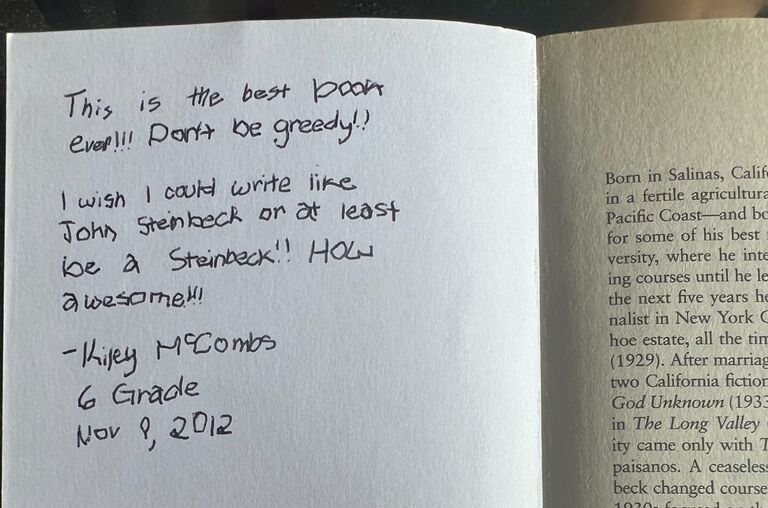 This is the best book
ever!!! Don't be greedy!!
I wish I could write like
John Steinbeck or at least
be a Steinbeck!! How
awesome!!!
-Kiley McCombs
6 Grade
Nov 9, 2012
Born in Salinas, Calif
in a fertile agricultura
Pacific Coast—and bo
for some of his best
versity, where he inte
ing courses until he le
the next five years he
nalist in New York C
hoe estate, all the tim
(1929). After marriag
two California fiction
God Unknown (1933
in The Long Valley
ity came only with T
paisanos. A ceaseless
beck changed course
1930s focused on th